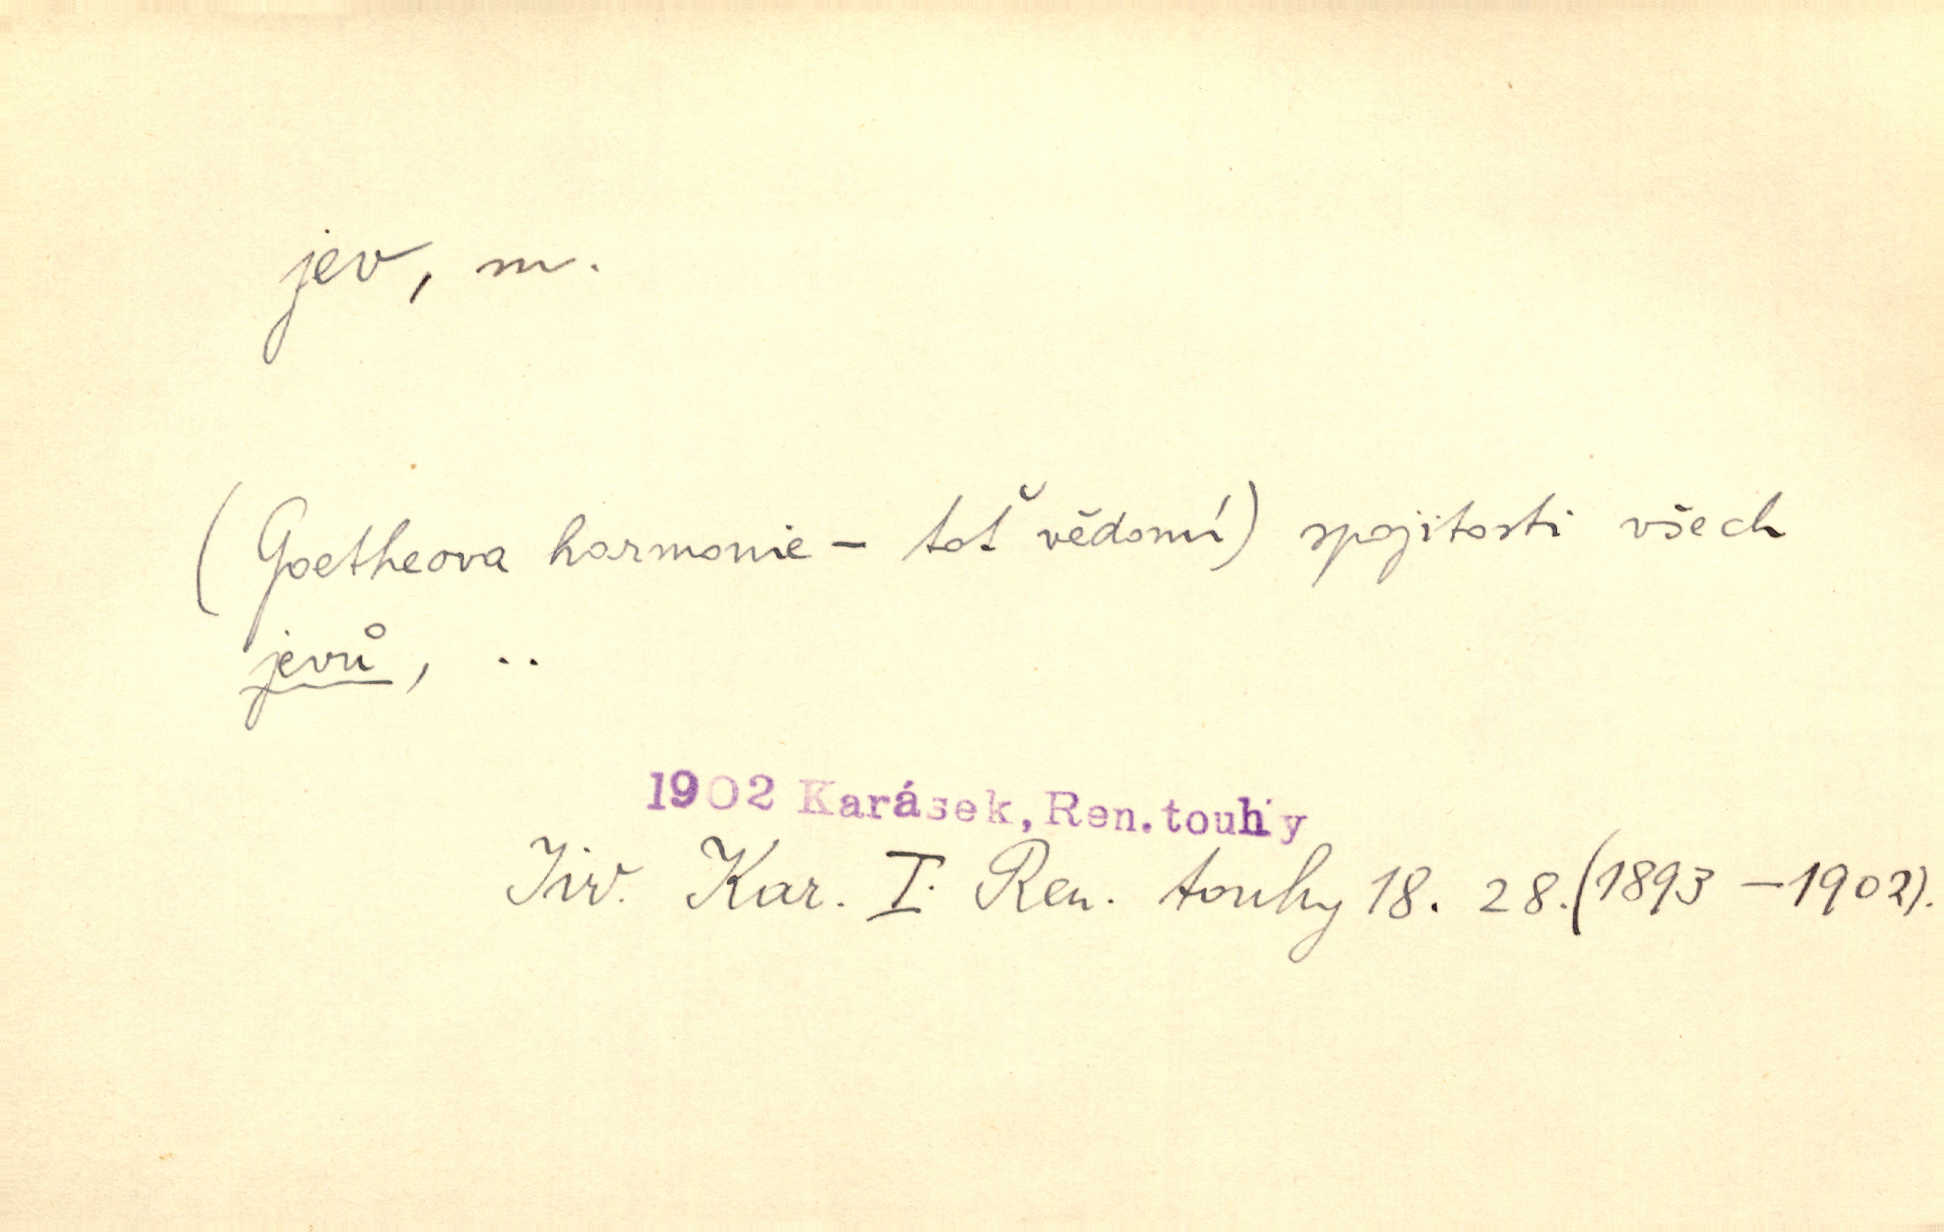 jev, m.
(Goetheova harmonie – toť vědomí) spojitosti všech
jevů, ..
1902 Karásek, Ren. touhy
Jiř. Kar. I. Ren. touhy 18. 28. (1893 – 1902).